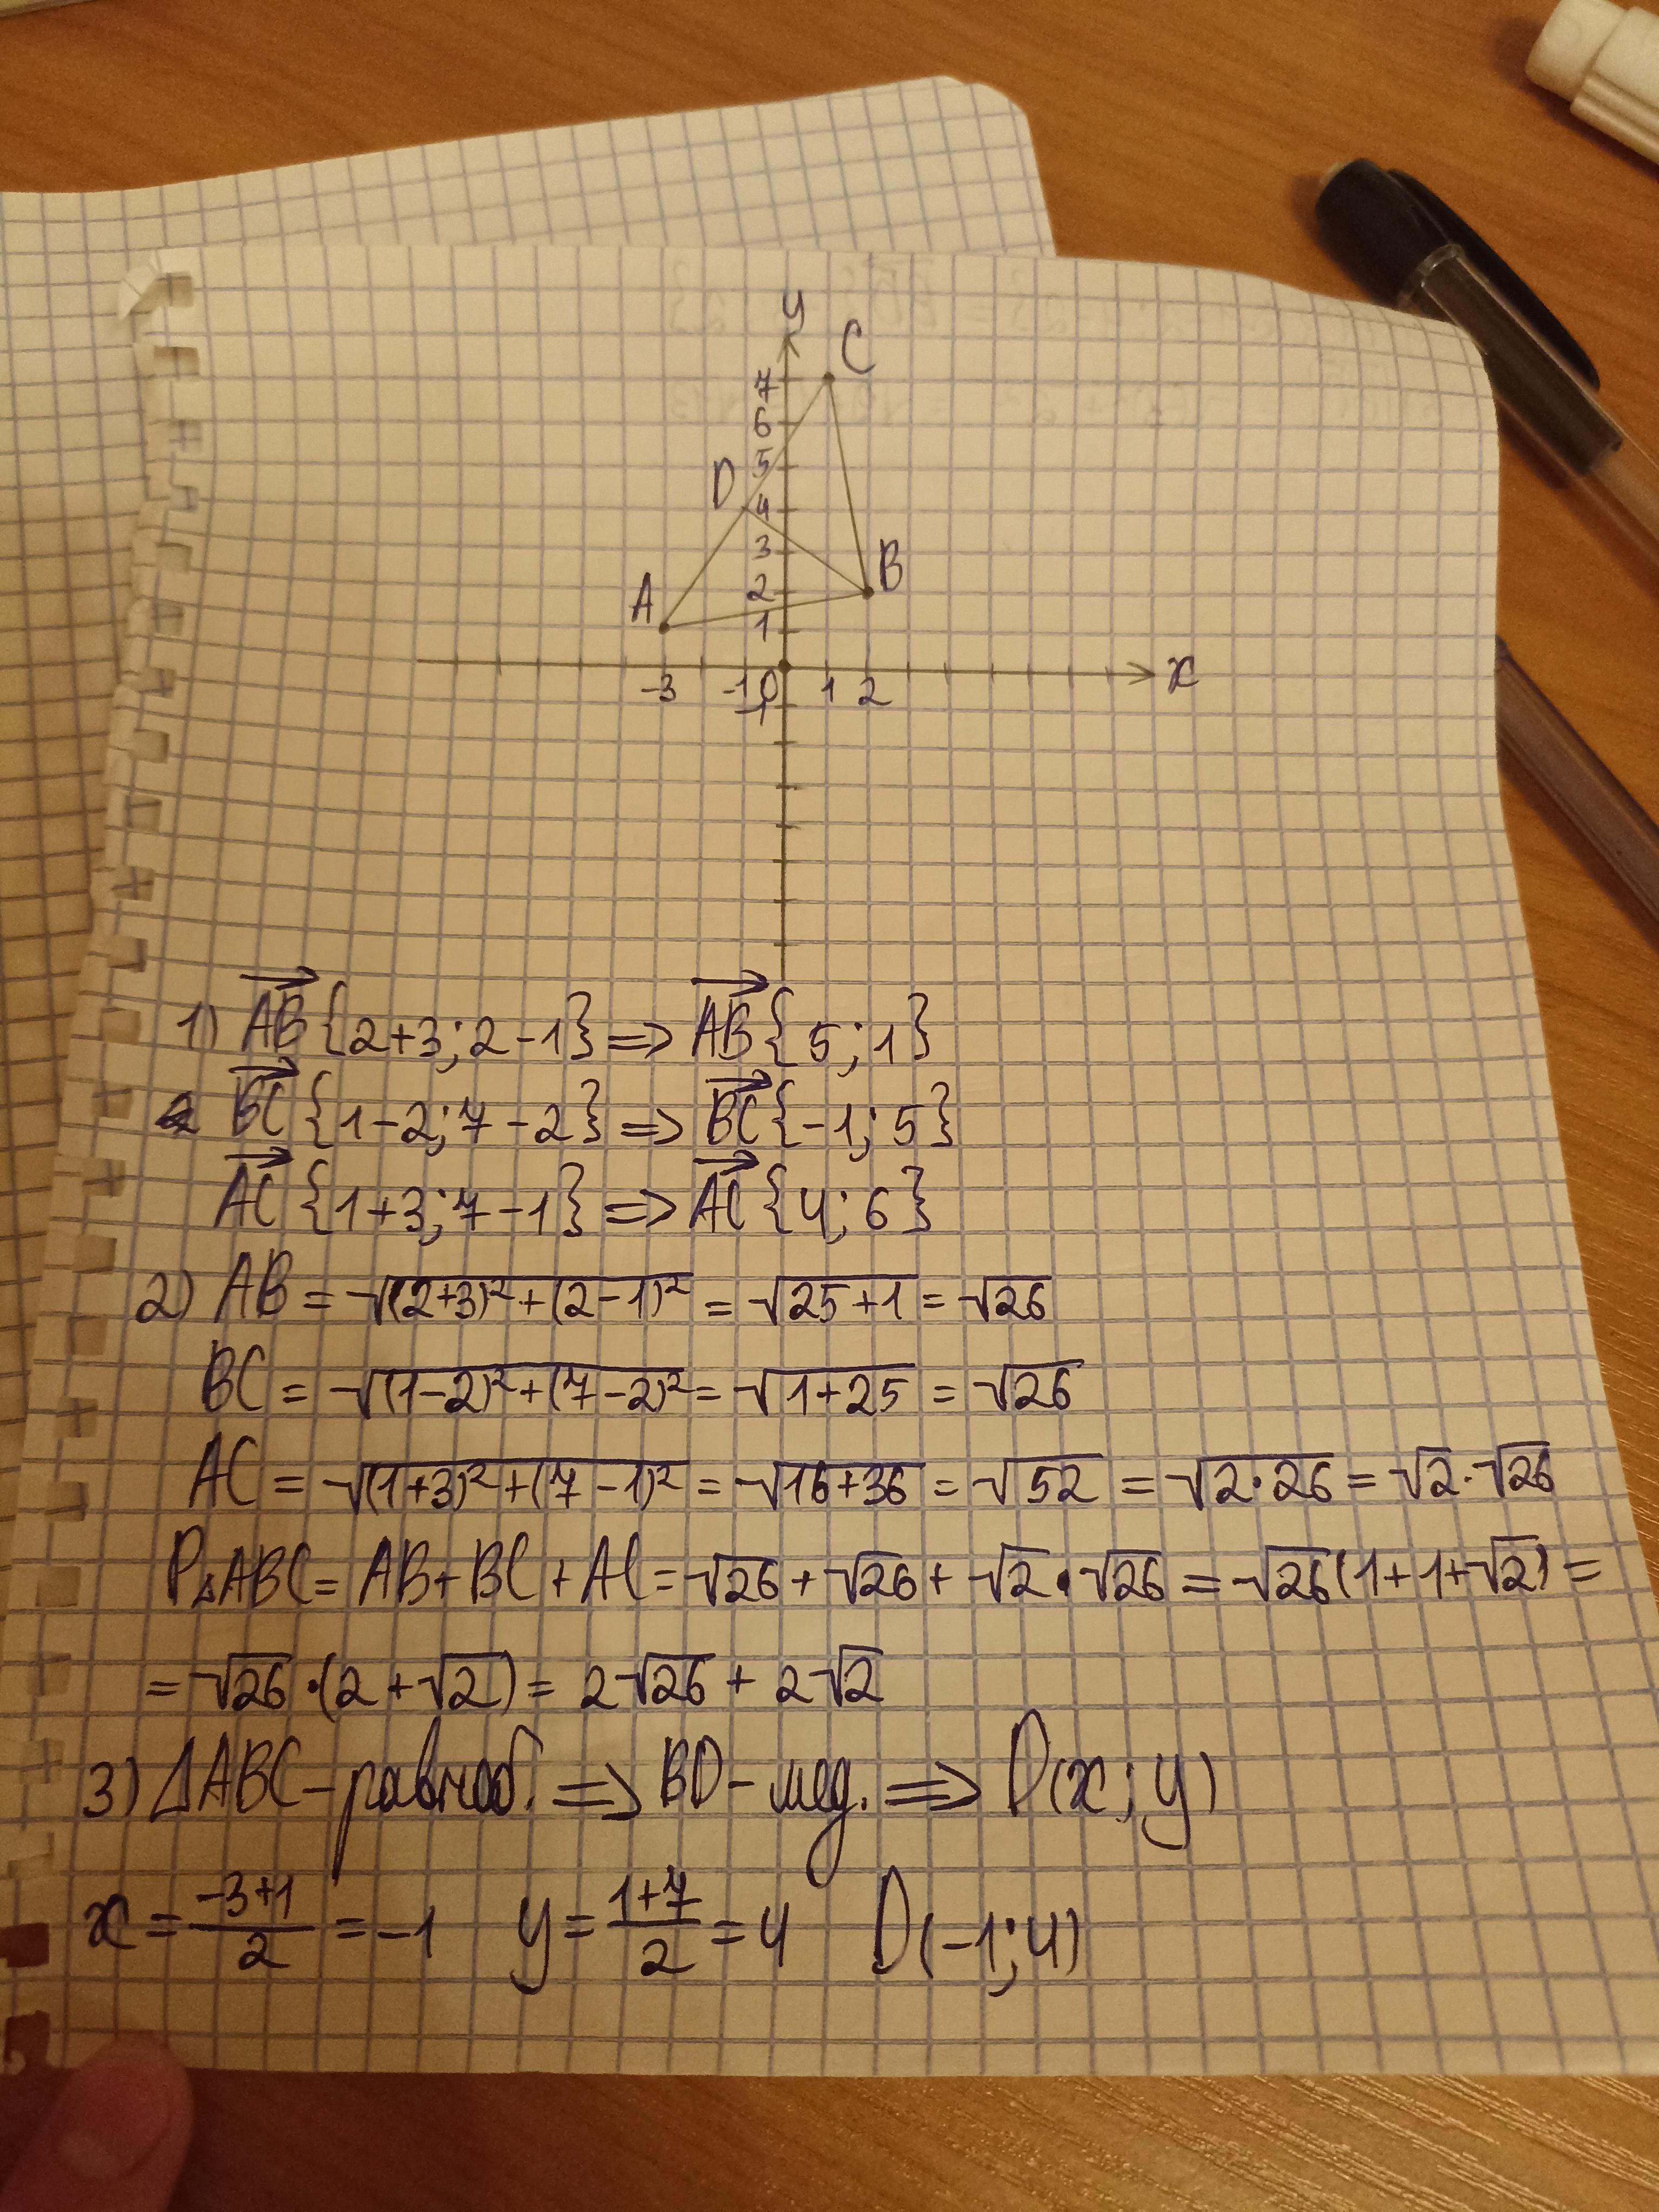 y
C
7
6
D 5
4
3
B
A 2
1
-3 -1 0 1 2 x
-1
1) AB{2+3;2-1} => AB{5;1}
BC{1-2;7-2} => BC{-1;5}
AC{1+3;7-1} => AC{4;6}
2) AB = √(2+3)²+(2-1)² = √25+1 = √26
BC = √(1-2)²+(7-2)² = √1+25 = √26
AC = √(1+3)²+(7-1)² = √16+36 = √52 = √2·26 = √2·√26
P△ABC = AB+BC+AC = √26+√26+√2·√26 = √26(1+1+√2) =
= √26·(2+√2) = 2√26+2√2
3) △ABC - равноб. => BD - мед. => D(x;y)
x = -3+1/2 = -1 y = 1+7/2 = 4 D(-1;4)